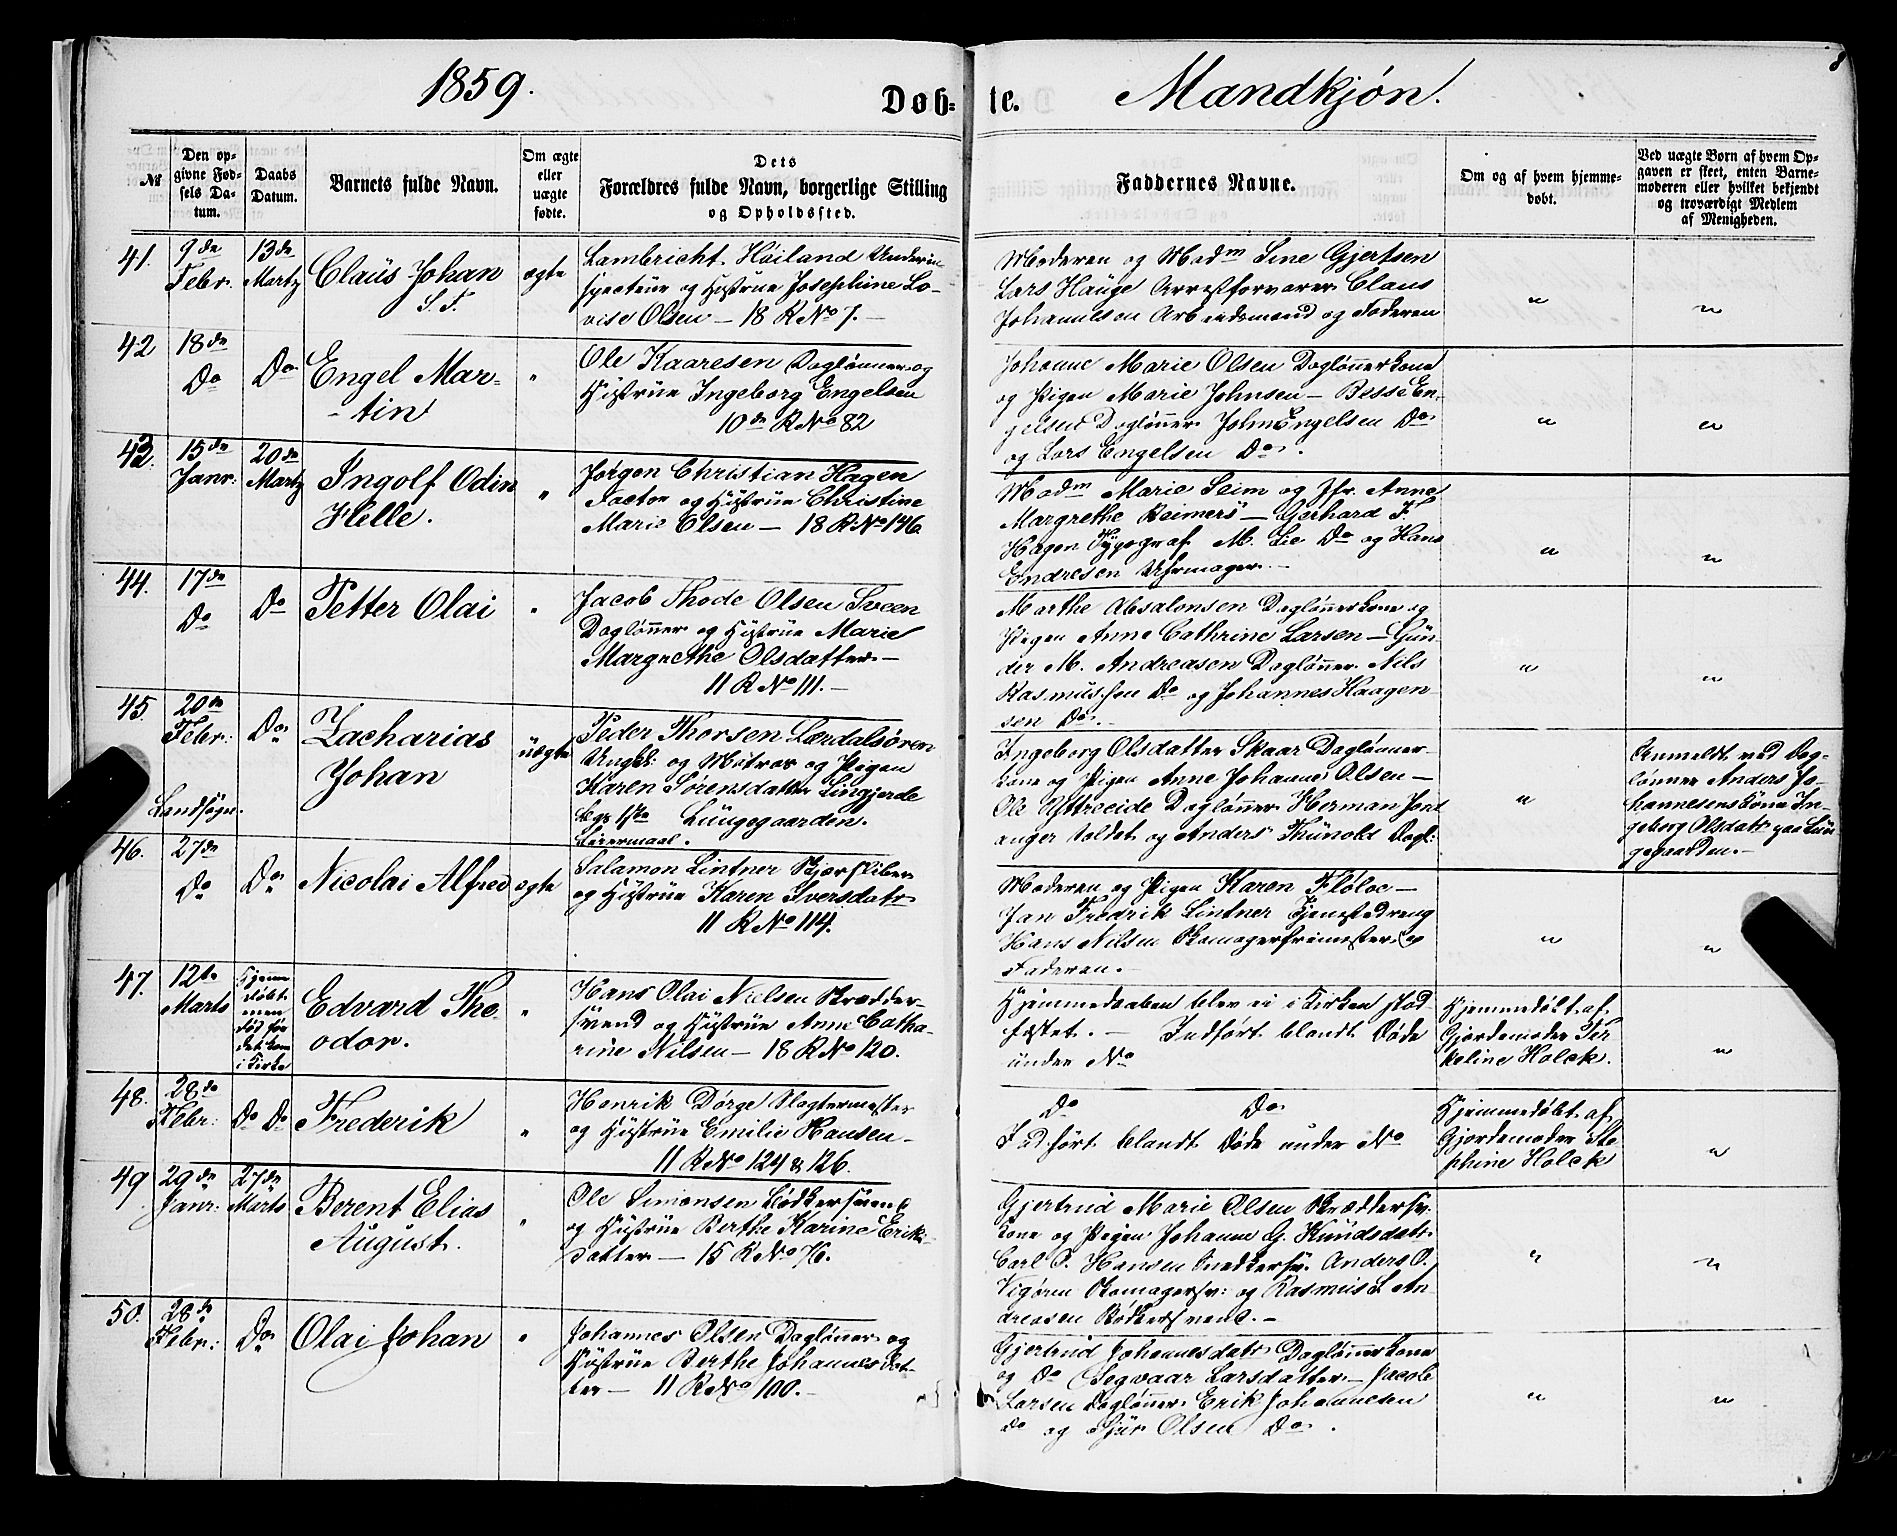 1859.
Døb-
te.
Mandkjøn.
8
№
Den op-
givne Fød-
sels Da-
tum.
Daabs
Datum.
Barnets fulde Navn.
Om ægte
eller
uægte
fødte.
Dets
Forældres fulde Navn, borgerlige Stilling
og Opholdssted.
Faddernes Navne.
Om og af hvem hjemme-
døbt.
Ved uægte Børn af hvem Op-
gaven er skeet, enten Barne-
moderen eller hvilket bekjendt
og troværdigt Medlem
af Menigheden.
41.
9de
Febr.
13de
Martz
Claüs Johan
S. F.
ægte
Lambricht Høiland Underin-
specteur og Hüstrüe Josephine Lo-
vise Olsen — 18 R No 7. —
Moderen og Madm Sine Gjertsen
Lars Haüge Arrestforvarer Claus
Johannesen Arbeidsmand og Faderen
"
"
42
18de
Do
Do
Engel Mar-
-tin
"
Ole Kaaresen Dagløn̄er og
Hüstrüe Ingeborg Engelsen
10de R No 82
Johanne Marie Olsen Dagløn̄erkone
og Pigen Marie Johnsen — Besse En-
gelsen Dagløn̄er John Engelsen Do
og Lars Engelsen Do.
"
"
43.
15de
Janr:
20de
Martz
Ingolf Odin
Helle.
"
Jørgen Christian Hagen
Factor og Hüstrüe Christine
Marie Olsen — 18 R No 146.
Madm Marie Seim og Jfr. Anne
Margrethe Reimers — Gerhard F
Hagen Typograf M. Lie Do og Hans
Endresen Uhrmager. —
"
"
44.
17de
Do
Do
Petter Olai
"
Jacob Thode Olsen Sveen
Dagløn̄er og Hüstrüe Marie
Margrethe Olsdatter —
11 R No 111. —
Marthe Absalonsen Dagløn̄erkone og
Pigen Anne Cathrine Larsen — Gün-
der M. Andreasen Dagløn̄er Nils
Rasmussen Do og Johannes Haagen-
sen Do. —
"
"
45.
20de
Febr:
Landsogn.
Do
Zacharias
Johan
üægte
Peder Thorsen Lærdalsøren
Ungk: og Matros og Pigen
Karen Sørensdatter Lingjerde
beg 1ste Lüngegaarden.
Leiermaal.
Ingeborg Olsdatter Skaar Dagløn̄er-
kone og Pigen Anne Johannes Olsen —
Ole Yttreeide Dagløn̄er Herman
anger Soldat og Anders Dagl:
"
Anmeldt ved Dag-
løn̄er Anders Jo-
hannesens Kone In-
geborg Olsdatr paa Lün-
gegaarden. —
46.
27de
Do
Do
Nicolai Alfred
ægte
Salamon Lintner
og Hüstrüe Karen Iversdatr
11 R No 114.
Moderen og Pigen Karen Fløloe —
Jan Fredrik Lintner Tjenestedreng
Hans Nilsen Skomagerfrimester og
Faderen. —
"
"
47.
12te
Marts
Hjem̄e
døbt
men
død før
det kom
i Kirke
Edvard The-
odor.
"
Hans Olai Nielsen Skrædder-
svend og Hüstrüe Anne Catha-
rine Nilsen — 18 R No 120.
Hjemmedaaben blev ei i Kirken stad-
fæstet. — Indført blandt Døde
ünder No
Hjemmedøbt af
Gjordemoder
Holck.
"
48.
28de
Febr:
Do Do
Frederik
"
Henrik Dørge Slagtermester
og Hüstrüe Emilie Hansen —
11 R No 124 & 126.
Do Do
Indført blandt Døde ünder No
Hjemmedøbt af
Gjordemoder
Holck
"
49
29de
Janr:
27de
Marts
Berent Elias
August.
"
Ole Simonsen Bødkersvend
og Hüstrüe Berthe Karine Erik-
datter — 15 R No 76.
Gjertrud Marie Olsen Skræddersv:
kone og Pigen Johanne G. Knüdsdatr
Carl O. Hansen Snedkersv. Anders O.
Vigøren Skomagersv: og Rasmus L An-
dreasen Bødkersvend. —
"
"
50.
28de
Febr:
Do
Olai Johan
"
Johannes Olsen Dagløn̄er og
Hüstrüe Berthe Johannesdat-
ter — 11 R No 100. —
Gjertrud Johannesdatr Dagløn̄erkone
og Do Segvaar Larsdatter — Jacob
Larsen Dagløn̄er Erik Johannesen
do og Sjür Olsen Do.
"
"